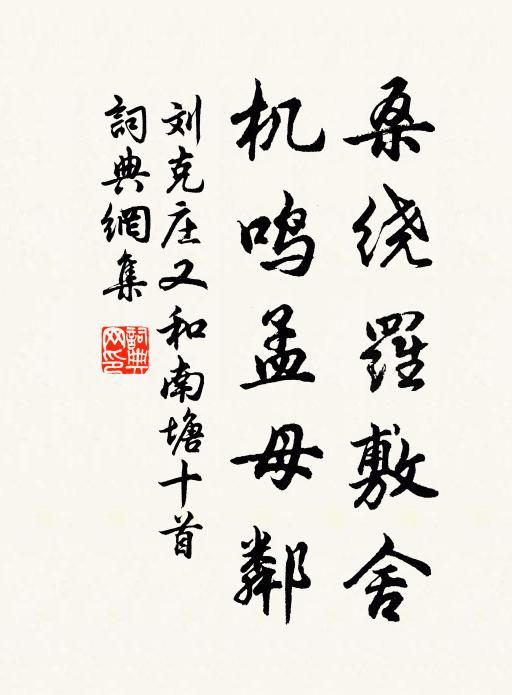 桑绕羅敷舍
机鸣孟母鄰
刘克庄又和南塘十首
詞典網集
詞典
网印